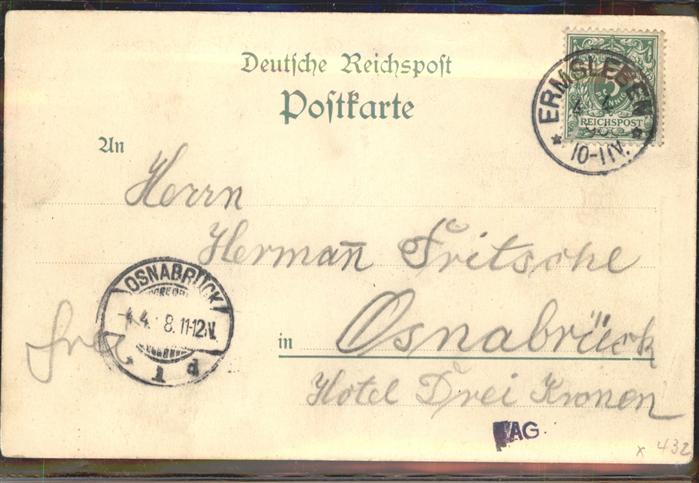 Deutsche Reichspost
Postkarte
ERMSLEBEN
4 4
10-11V.
REICHSPOST
An
Herrn
Herman̄ Fritsche
OSNABRÜCK
4.4. 8.11-12.V.
1 d
in Osnabrück
Hotel Drei Kronen
AG
x 432